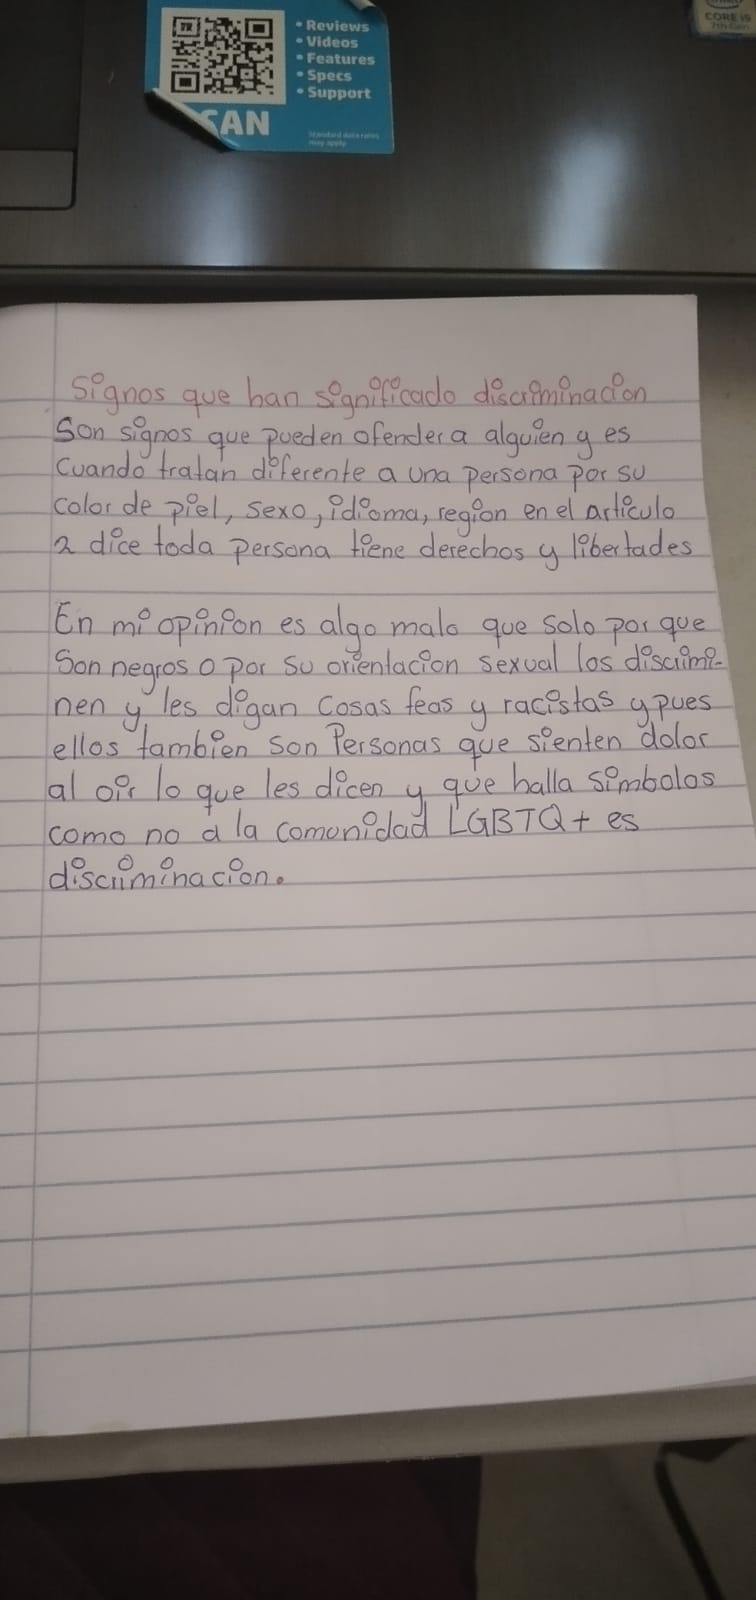 • Reviews
• Videos
• Features
• Specs
• Support
SCAN
Standard data rates
may apply
CORE i5
7th Gen
Signos que han significado discriminacion
Son signos que pueden ofender a alguien y es
Cuando tratan diferente a una persona por su
color de piel, sexo, idioma, region en el articulo
2 dice toda persona tiene derechos y libertades
En mi opinion es algo malo que solo por que
Son negros o por su orientacion sexual los discrimi-
nen y les digan cosas feas y racistas y pues
ellos tambien son Personas que sienten dolor
al oir lo que les dicen y que halla simbolos
como no a la comunidad LGBTQ+ es
discriminacion.